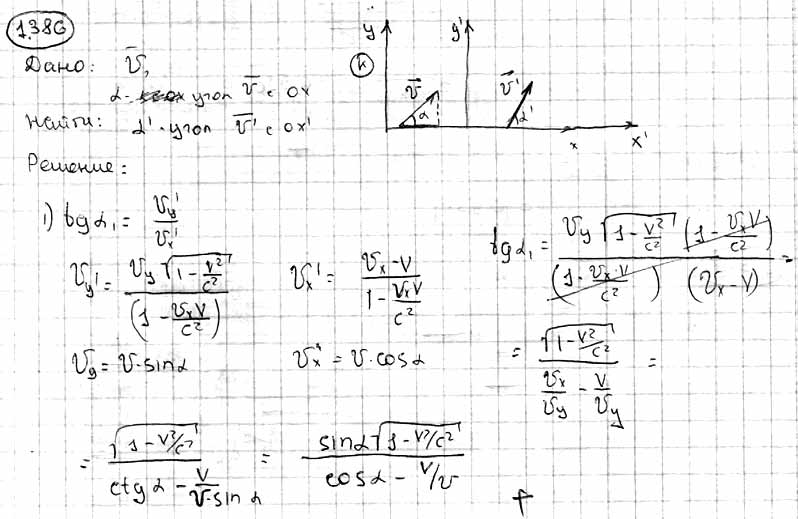 1.386
Дано: V̄,
α - угол V̄ с ox
Найти: α' - угол V̄' с ox'
Решение:
y y' K V̄ α V̄' α' x x'
1) tgα₁ = V_y' / V_x'
V_y' = V_y √(1 - V²/c²) / (1 - V_x V/c²)
V_x' = (V_x - V) / (1 - V_x V/c²)
tgα₁ = V_y √(1 - V²/c²) (1 - V_x V/c²) / ((1 - V_x·V/c²) (V_x - V)) =
V_y = V·sinα
V_x = V·cosα
= √(1 - V²/c²) / (V_x/V_y - V/V_y) =
= √(1 - V²/c²) / (ctgα - V/(V·sinα)) = sinα √(1 - V²/c²) / (cosα - V/v)
+